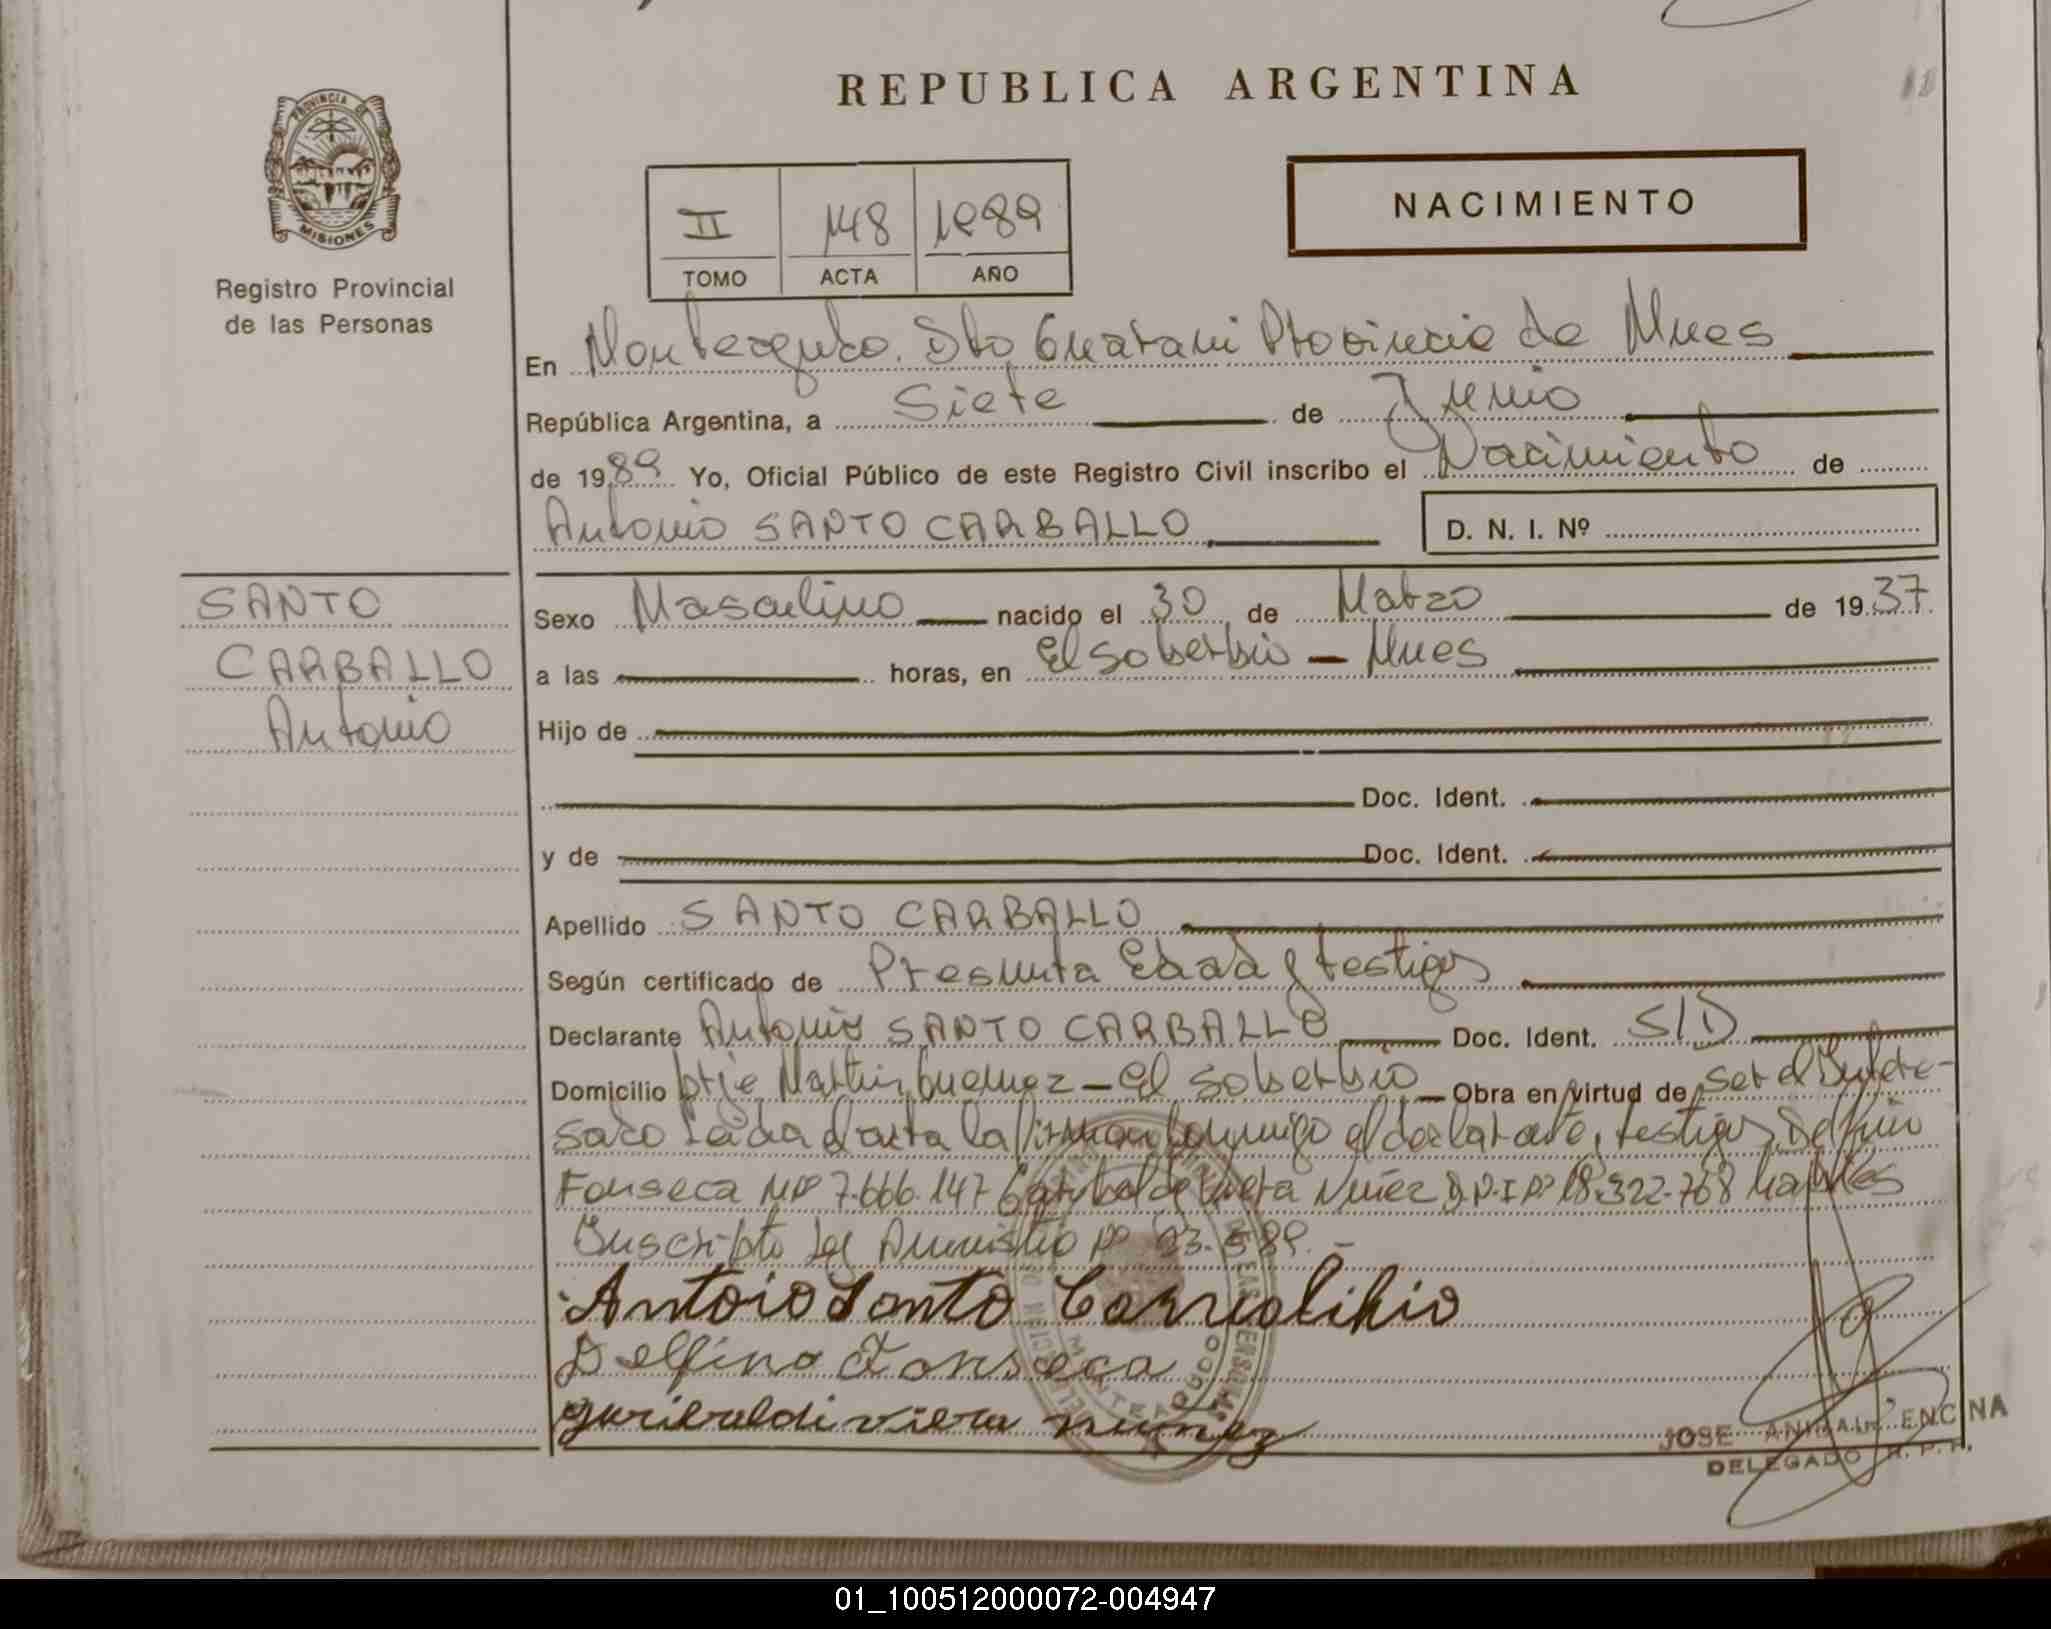 REPUBLICA ARGENTINA
PROVINCIA DE
MISIONES
Registro Provincial
de las Personas
II 148 1989
TOMO ACTA AÑO
NACIMIENTO
En Monteagudo. Dto Guarani Provincia de Mnes
República Argentina, a Siete de Junio
de 1989 Yo, Oficial Público de este Registro Civil inscribo el Nacimiento de
Antonio SANTO CARBALLO D. N. I. Nº
SANTO
CARBALLO
Antonio
Sexo Masculino nacido el 30 de Marzo de 1937
a las horas, en El Soberbio - Mnes
Hijo de
Doc. Ident.
y de Doc. Ident.
Apellido SANTO CARBALLO
Según certificado de Presunta Edad y testigos
Declarante Antonio SANTO CARBALLO Doc. Ident. S/D
Domicilio Martin Guemez - El Soberbio - Obra en virtud de Ser el Intere-
sado Leida el acta la firman conmigo el declarante, testigos Delfino
Fonseca 7.666.147 Viera Nuñez D.N.I Nº 18.322.768
Antoio Santo
Delfino Fonseca
gariboldi viera nuñez
MONTEAGUDO
JOSE ANIBAL ENCINA
DELEGADO R. P. P.
01_100512000072-004947